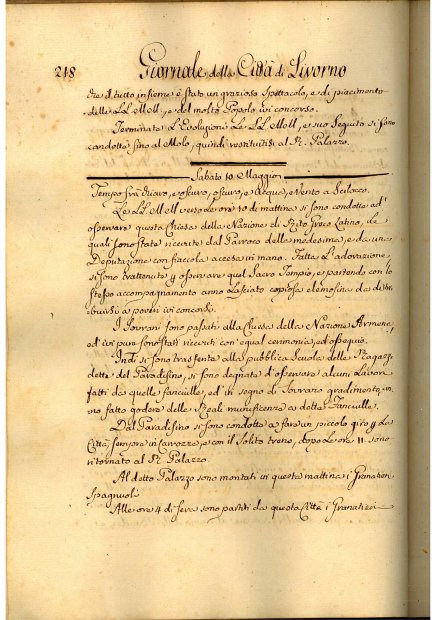 218 Giornale della Città di Livorno
che il tutto insieme è stato un grazioso Spettacolo, e di piacimento
delle LL. MM., e del molto Popolo ivi concorso.
Terminata l'Evoluzione Le LL. MM., e suo Seguito si sono
condotte sino al Molo, quindi restituitisi al Rl. Palazzo.
Sabato 10. Maggio
Tempo fra chiaro, e oscuro, e Acqua, e Vento a Scilocco.
Le LL. MM. verso le ore 10 di mattina si sono condotte ad
osservare questa Chiesa della Nazione di Rito Greco Latino, le
quali sono state ricevute dal Parroco della medesima, e da una
Deputazione con fiaccola accesa in mano. Fatta l'adorazione,
si sono trattenute ad osservare quel Sacro Tempio, e partendo con lo
stesso accompagnamento anno lasciato copiosa elemosina da distri
buirsi a poveri ivi concorsi.
I Sovrani sono passati alla Chiesa della Nazione Armena,
ed ivi pure sono stati ricevuti con egual cerimonia, ed ossequio.
Indi si sono trasferite alla pubblica Scuola delle Ragazze
dette del Paradisino, si sono degnate d'osservare alcuni Lavori
fatti da quelle fanciulle, ed in segno di Sovrano gradimento
no fatto godere delle Reali munificenze a dette Fanciulle.
Dal Paradisino si sono condotte a fare un piccolo giro p. La
Città, sempre in Carrozza, e con il Solito treno, dopo le ore 11 sono
ritornate al Rl. Palazzo.
Al detto Palazzo sono montati in questa mattina i Granatieri
Spagnuoli
Alle ore 4 di Sera sono partiti da questa Città i Granatieri